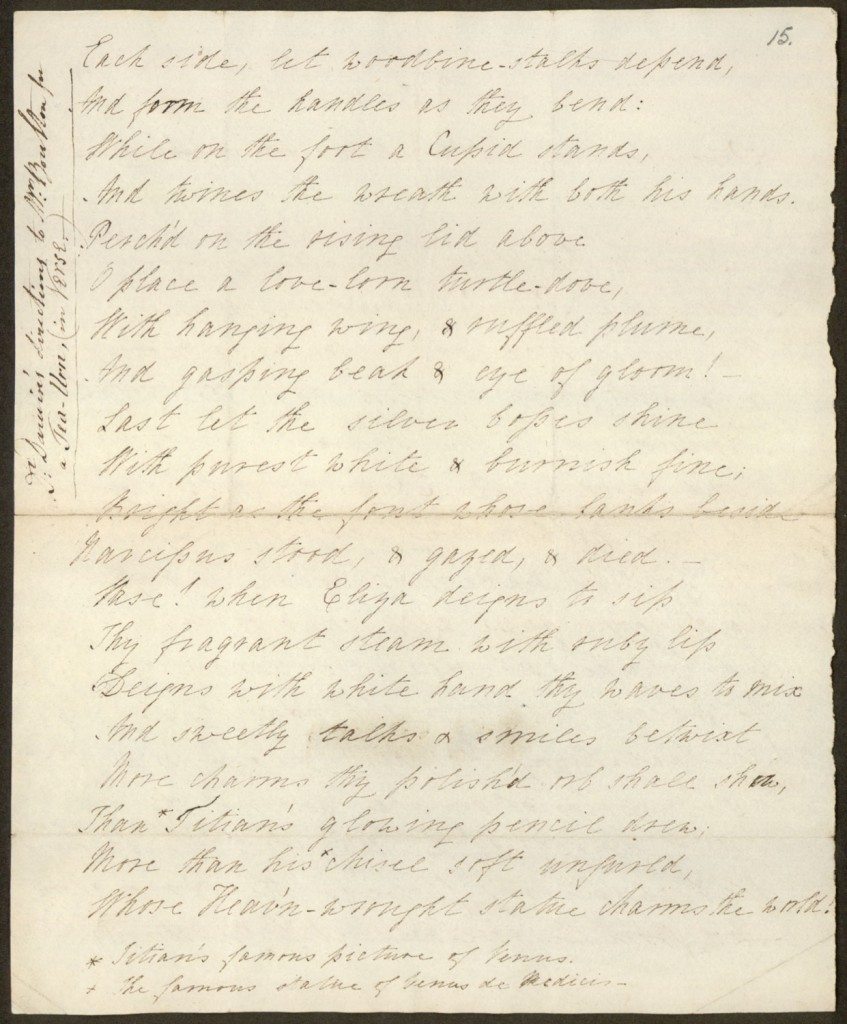 15.
Each side, let woodbine-stalks depend,
And form the handles as they bend:
While on the foot a Cupid stands,
And twines the wreath with both his hands.
Perch'd on the rising lid above
O place a love-lorn turtle-dove,
With hanging wing, & ruffled plume,
And gasping beak & eye of gloom! —
Last let the silver bosses shine
With purest white & burnish fine;
Bright as the font whose banks beside
Narcissus stood, & gazed, & died. —
Vase! when Eliza deigns to sip
Thy fragrant steam with ruby lip
Deigns with white hand thy waves to mix
And sweetly talks & smiles betwixt
More charms thy polish'd orb shall shew,
Than * Titian's glowing pencil drew;
More than his + chisel soft unfurled,
Whose Heav'n-wrought statue charms the world!
* Titian's famous picture of Venus.
+ the famous statue of Venus de Medicis —
Dr. Darwin's directions to Mr. Boulton for
a Tea-Urn, (in Verse.)